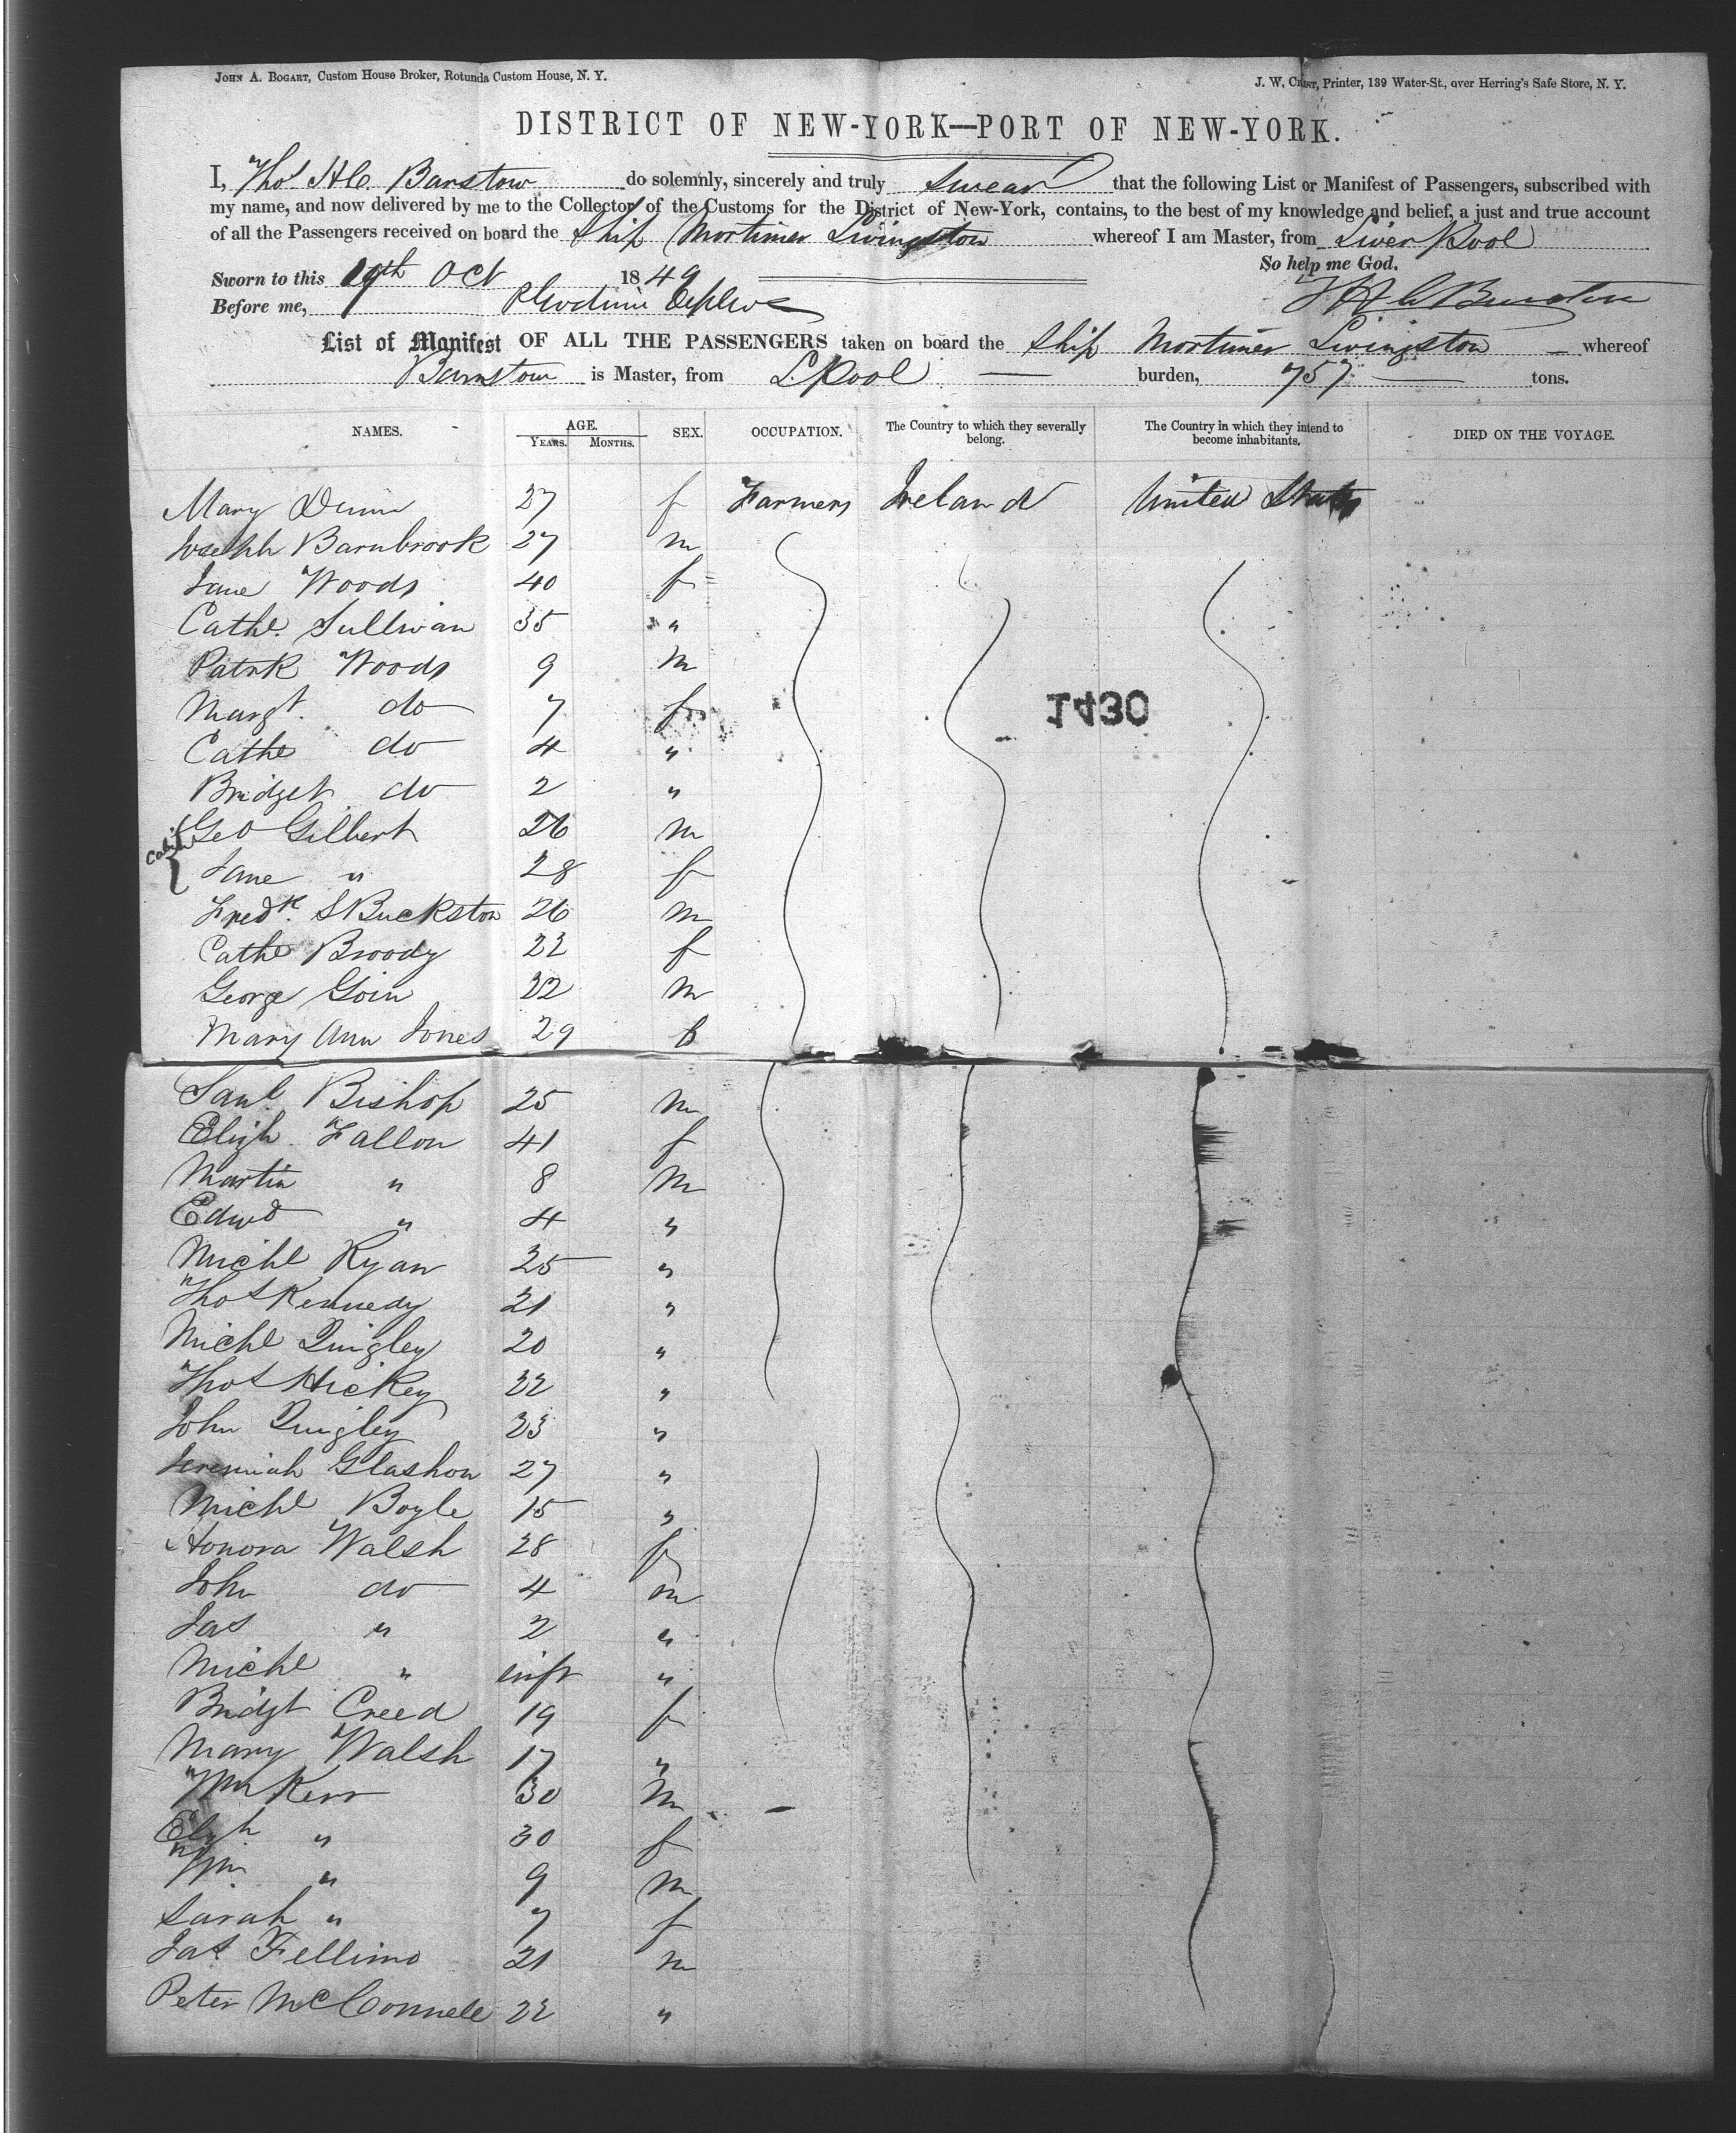 JOHN A. BOGART, Custom House Broker, Rotunda Custom House, N. Y.
J. W. CHIST, Printer, 139 Water-St., over Herring's Safe Store, N. Y.
DISTRICT OF NEW-YORK—PORT OF NEW-YORK.
I, Thos H C Barstow do solemnly, sincerely and truly swear that the following List or Manifest of Passengers, subscribed with
my name, and now delivered by me to the Collector of the Customs for the District of New-York, contains, to the best of my knowledge and belief, a just and true account
of all the Passengers received on board the Ship Mortimer Livingston whereof I am Master, from Liverpool
So help me God.
Sworn to this 19th Oct 1849
Before me,
List of Manifest OF ALL THE PASSENGERS taken on board the Ship Mortimer Livingston — whereof
Barstow is Master, from L.Pool — burden, 757 — tons.
NAMES. AGE. YEARS. MONTHS. SEX. OCCUPATION. The Country to which they severally belong. The Country in which they intend to become inhabitants. DIED ON THE VOYAGE.
Mary Dunn 27 f Farmers Ireland United States
Joseph Barnbrook 27 m
Jane Woods 40 f
Cathe. Sullivan 35 "
Patrk Woods 9 m
Margt. do 7 f
1430
Cathe do 4 "
Bridget do 2 "
Cabin
Geo Gilbert 26 m
Jane " 28 f
Fredk. S Buckston 26 m
Cathe Broody 22 f
George Goin 22 m
Mary Ann Jones 29 f
Saml Bishop 25 m
Elizh Fallon 41 f
Martin " 8 m
Edwd " 4 "
Michl Ryan 25 "
Thos Kennedy 21 "
Michl Quigley 20 "
Thos Hickey 22 "
John Quigley 23 "
Jeremiah Glashon 27 "
Michl Boyle 15 "
Honora Walsh 28 f
John do 4 m
Jas " 2 "
Michl " inft "
Bridgt Creed 19 f
Mary Walsh 17 "
Wm Kerr 30 m
Elizh " 30 f
Wm " 9 m
Sarah " 7 f
Jas Fellimo 21 m
Peter McConnele 22 "